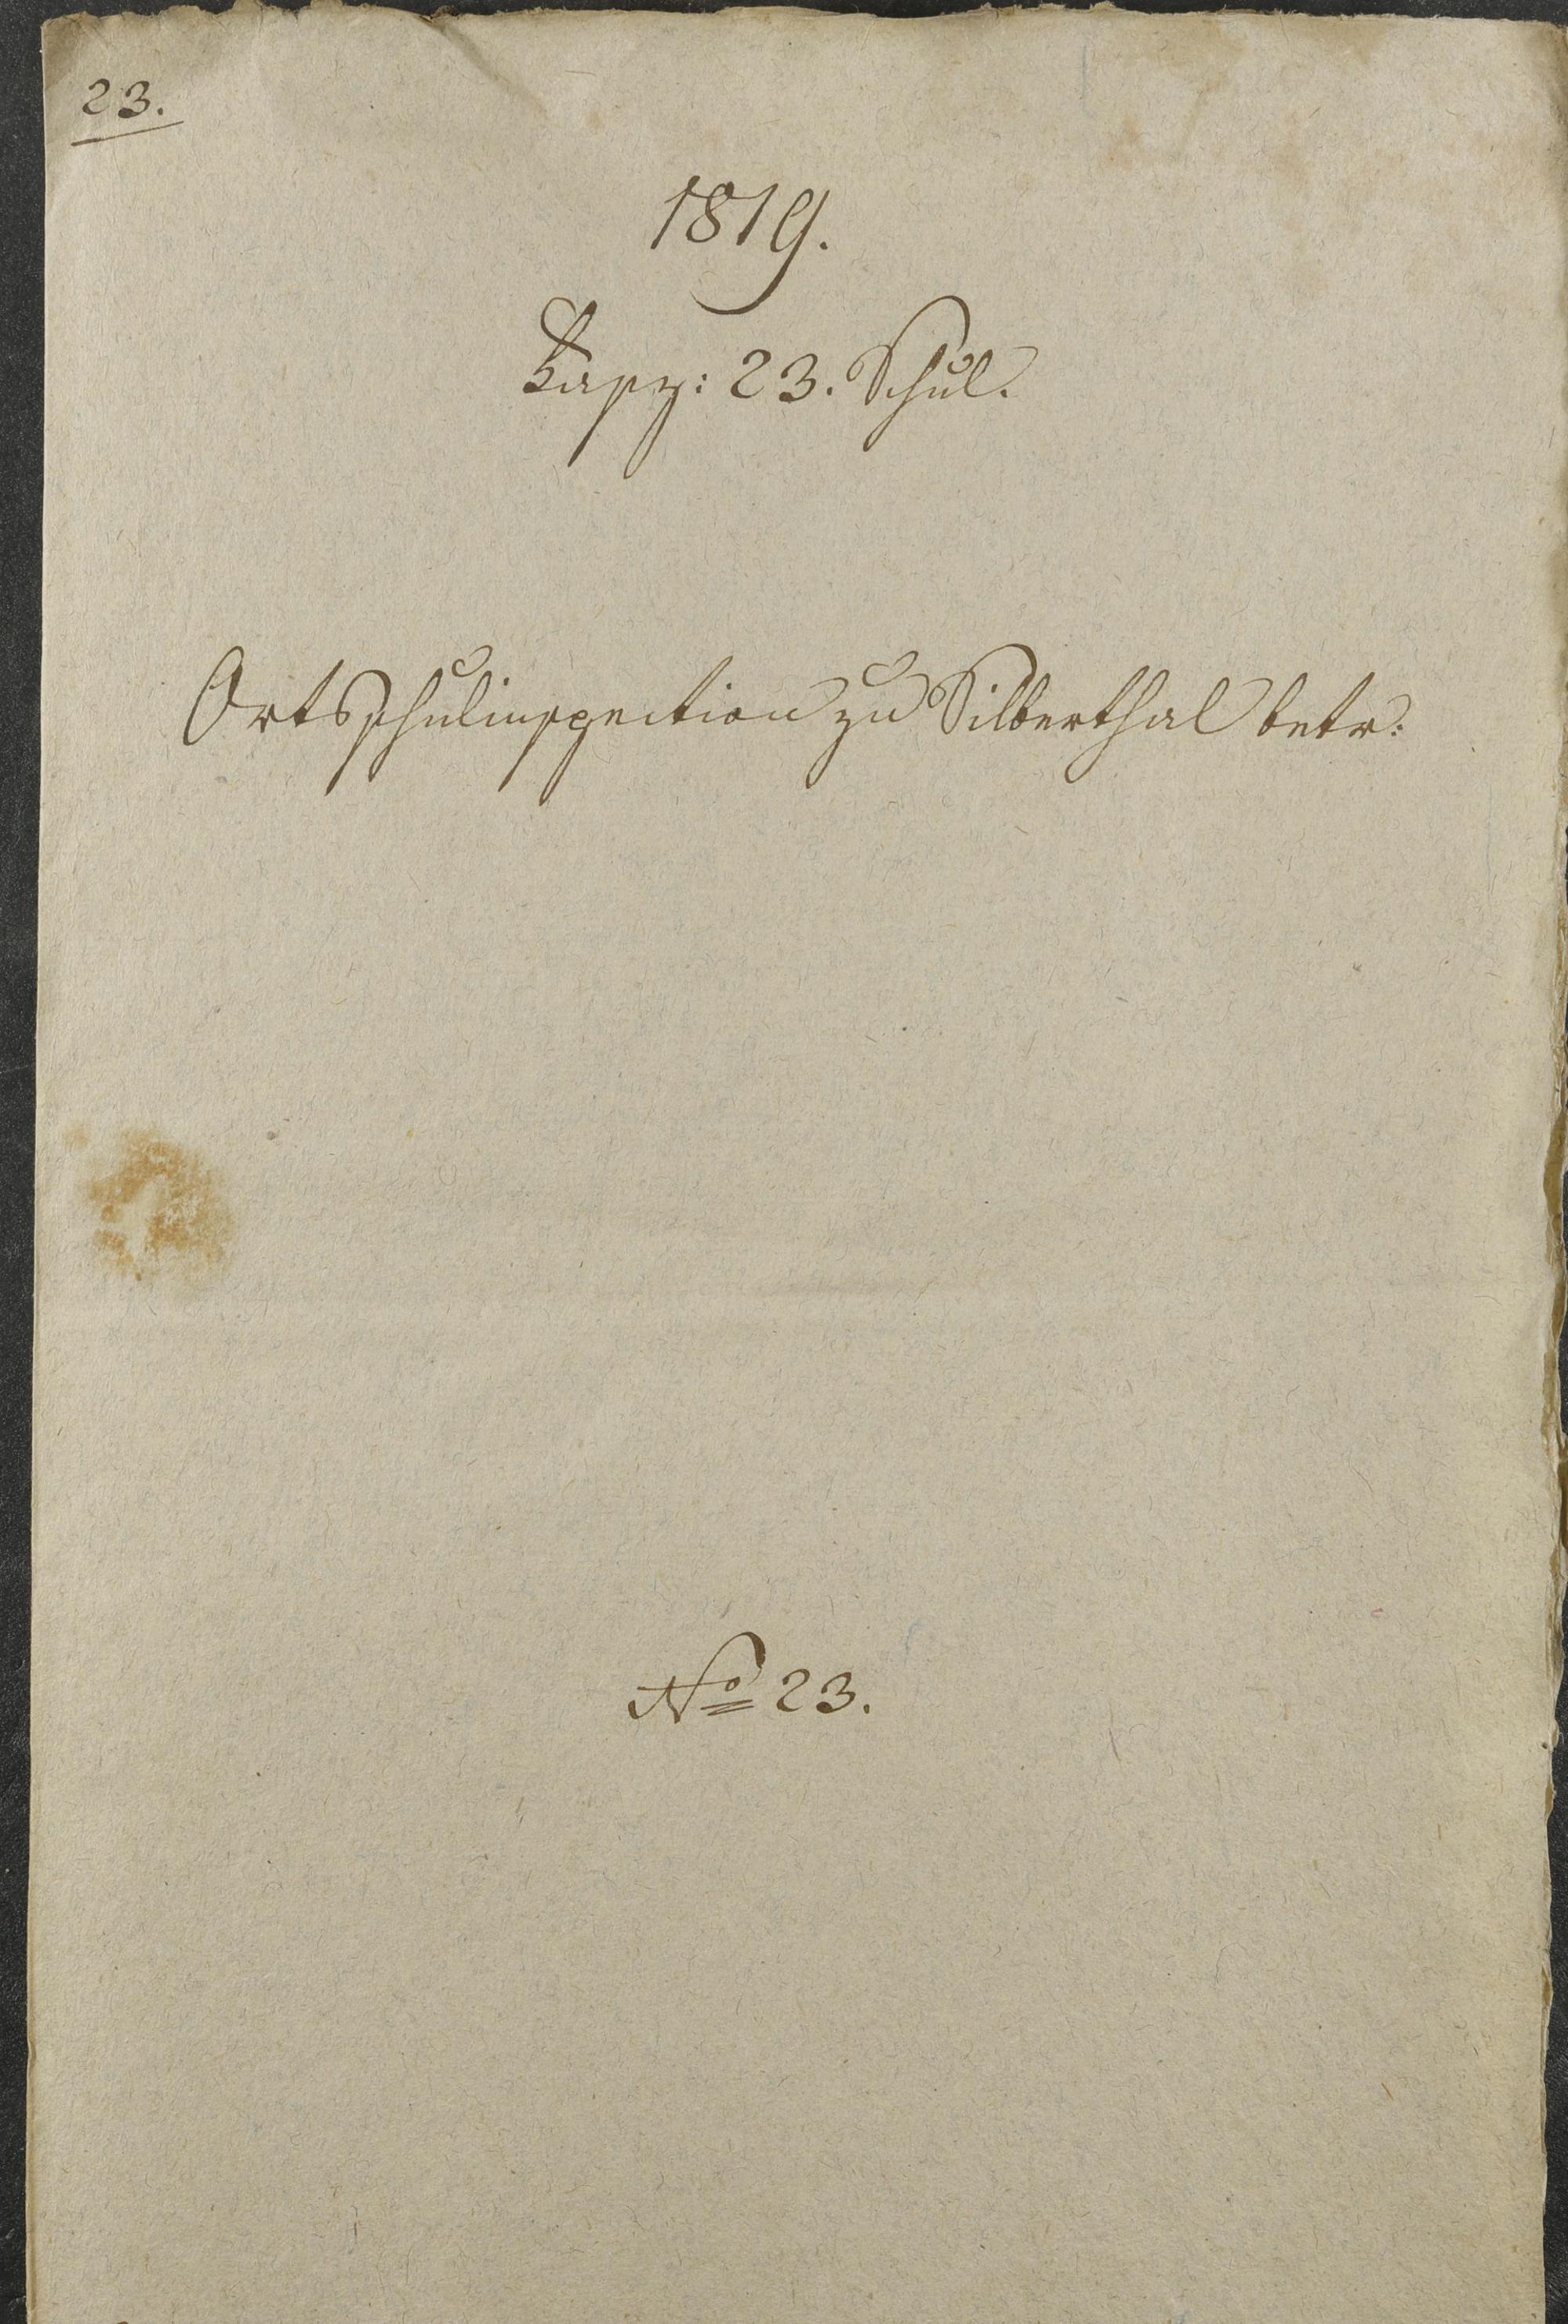 23.
1819.
Fasz: 23. Schul.
Ortsschulinspection zu Silberthal betr:
No 23.